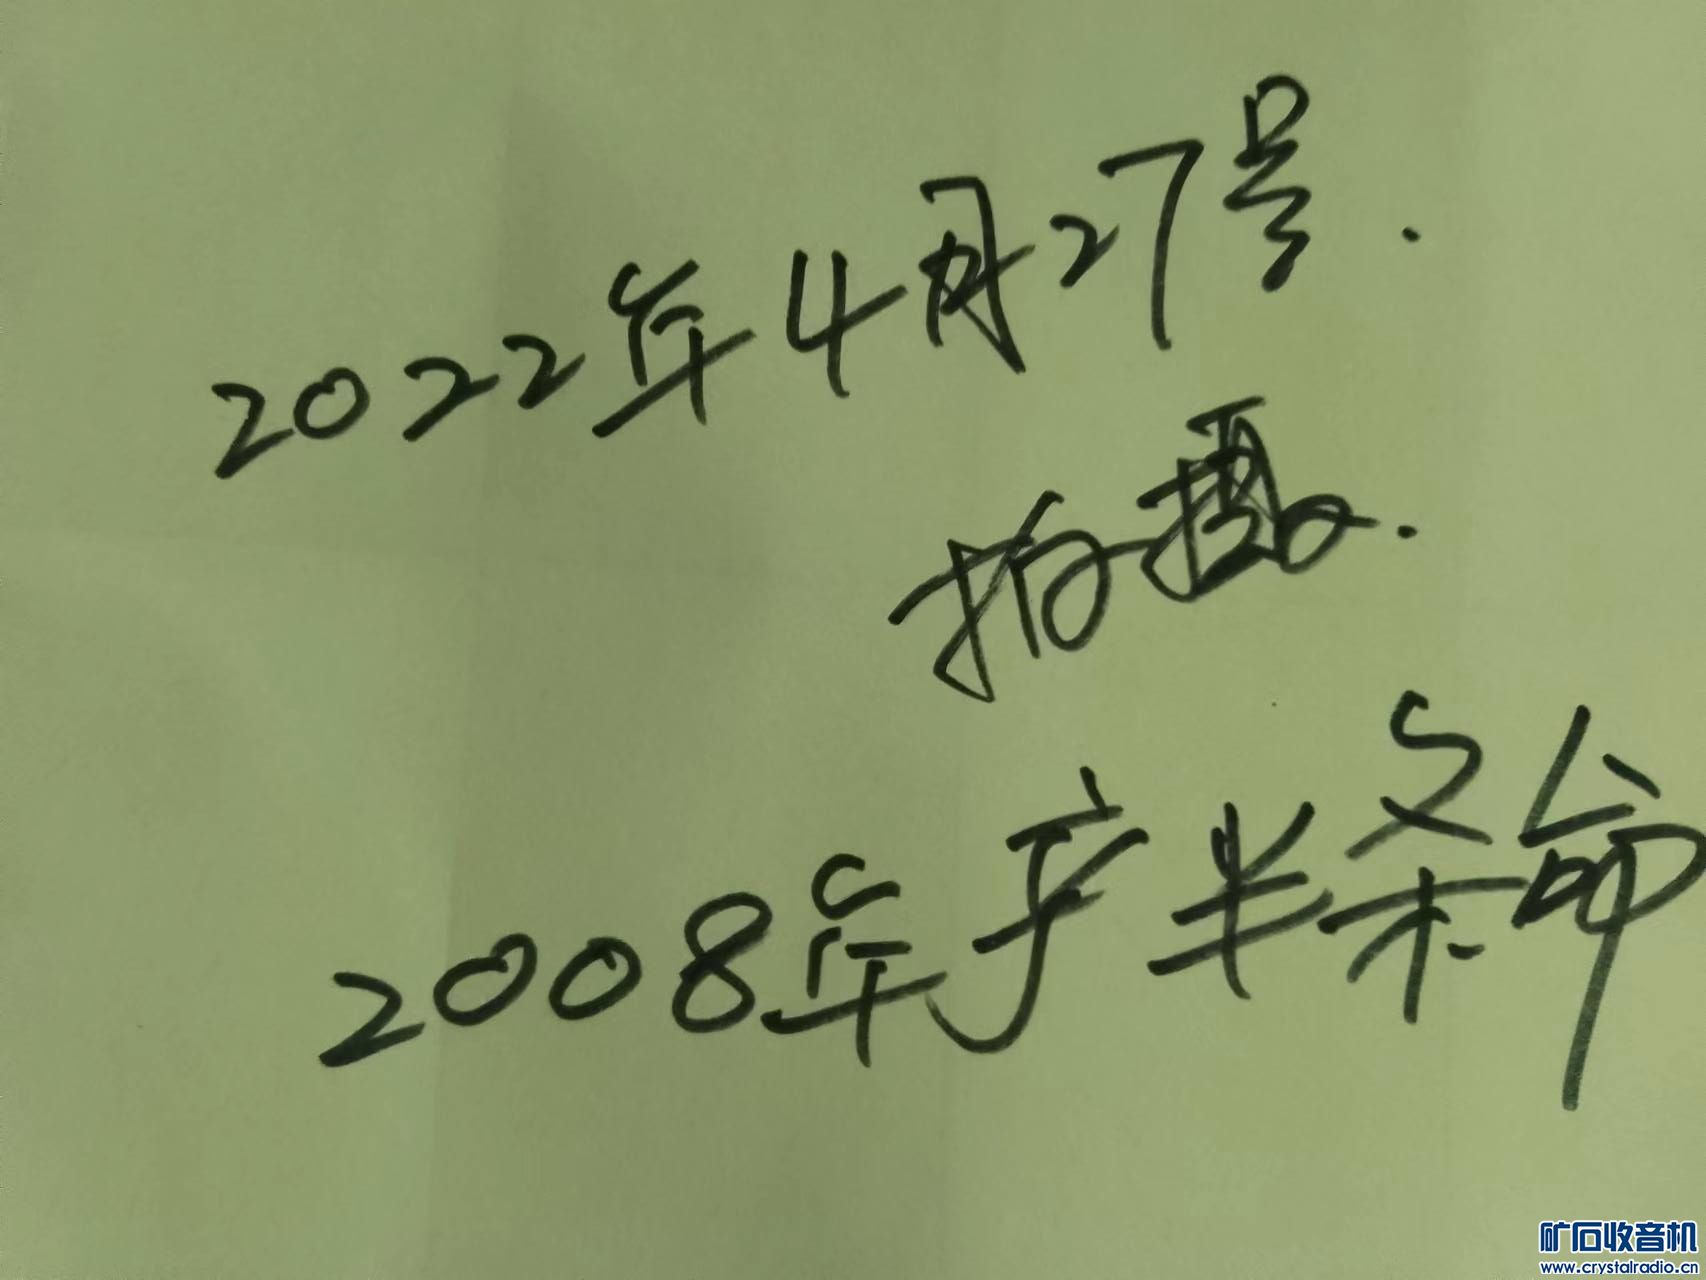 2022年4月27号.
拍摄.
2008年产半条命
矿石收音机
www.crystalradio.cn